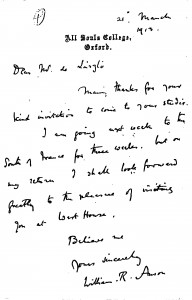 (4)
20th March
1912.
All Souls College,
Oxford.
Dear Mr. de László
Many thanks for your
kind invitation to come to your studio.
I am going next week to the
South of France for three weeks. but on
my return I shall look forward
greatly to the pleasure of visiting
you at West House.
Believe me
Yours sincerely
William. R. Anson